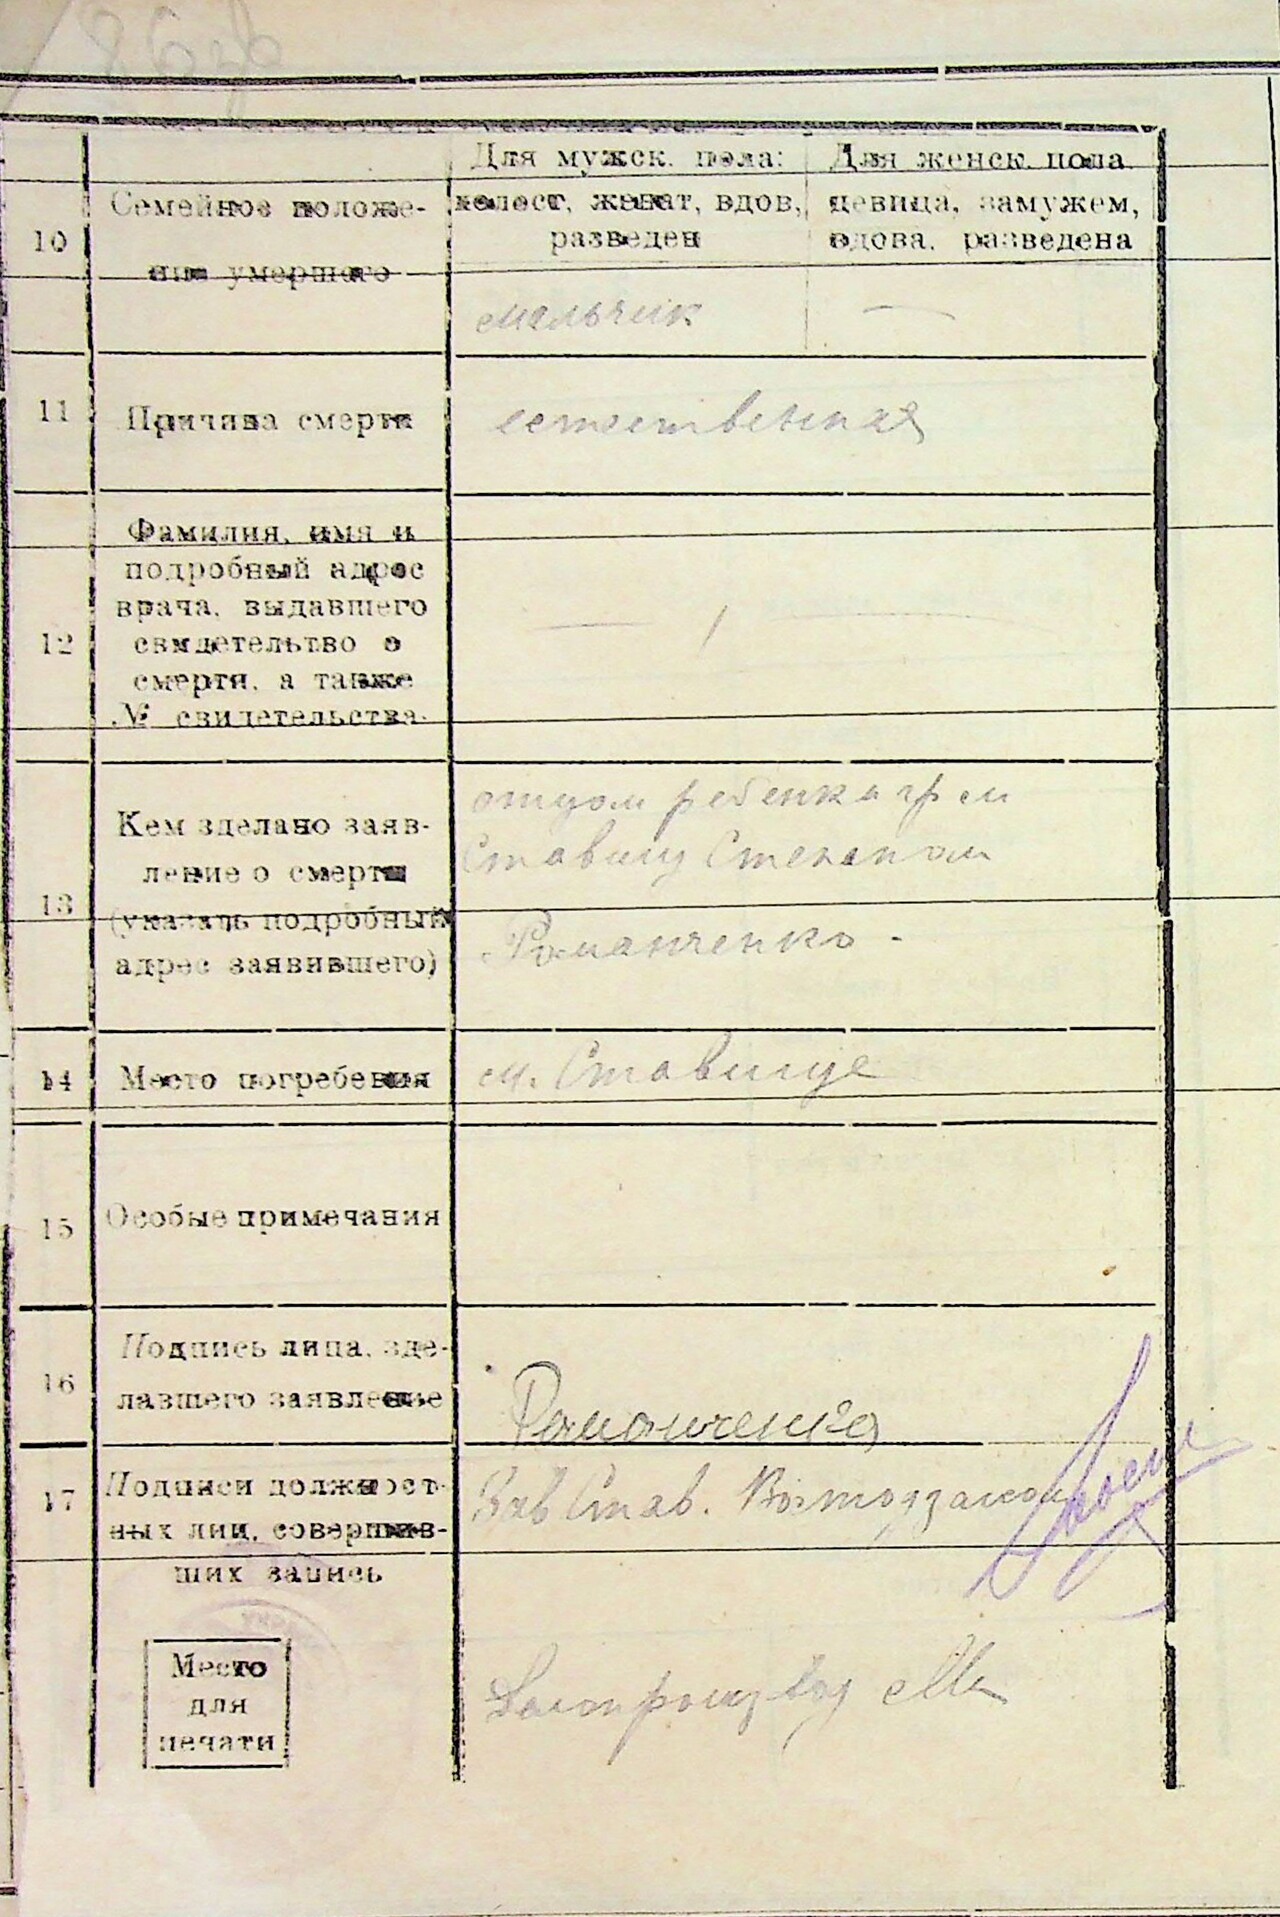 Для мужск. пола: Для женск. пола
10 Семейное положе- холост, женат, вдов, девица, замужем,
разведен вдова, разведена
ние умершего
мальчик —
11 Причина смерти естественная
Фамилия, имя и
подробный адрес
врача, выдавшего
12 свидетельство о
смерти, а также
№ свидетельства
отцом ребенка гр м
Кем зделано заяв-
Ставищ Степаном
ление о смерти
13 (указать подробный
Романченко -
адрес заявившего)
14 Место погребения м. Ставище
15 Особые примечания
Подпись лица, зде-
16 лавшего заявление Романченко
17 Подписи должност- Зав Став.
ных лиц, соверш­ив-
ших запись
Место
для
печати